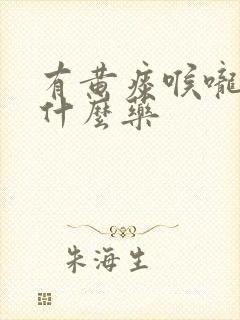 有黄痰喉嚨
什麼藥
朱海生